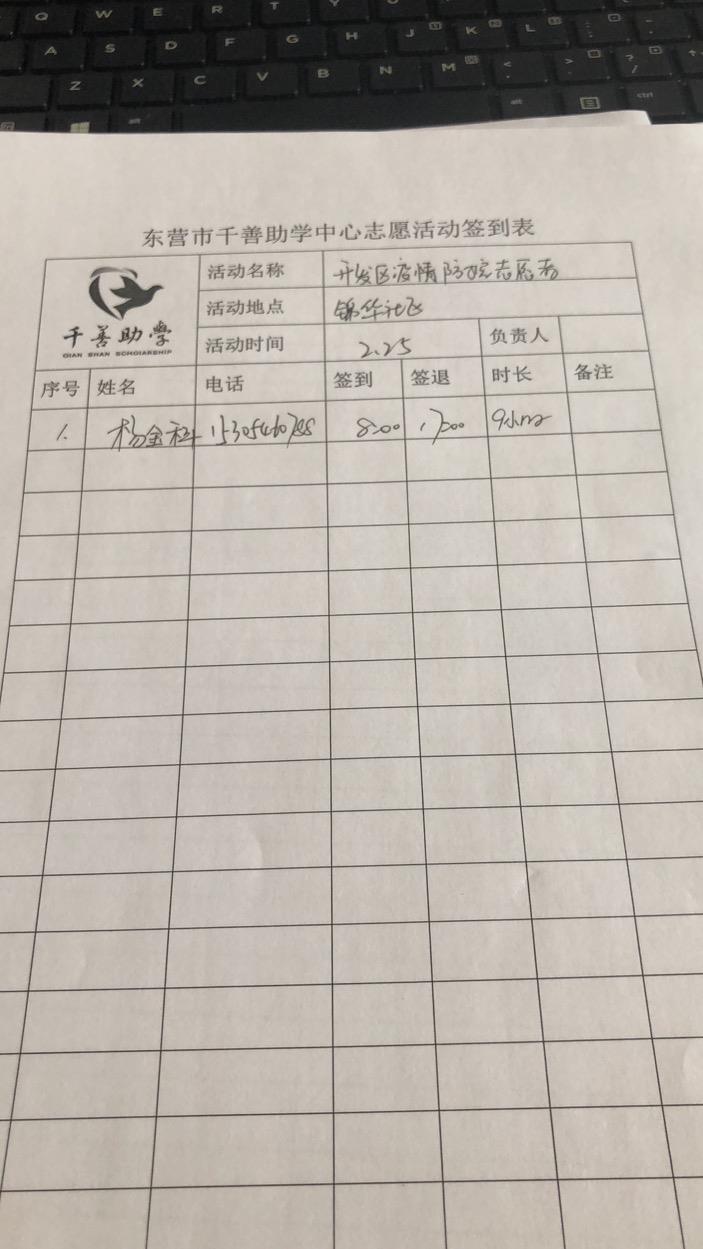 Q W E R T
A S D F G H J K L
Z X C V B N M
alt alt ctrl
东营市千善助学中心志愿活动签到表
千善助學
QIAN SHAN SCHOIARSHIP
活动名称 开发区疫情防控志愿者
活动地点 锦华社区
活动时间 2.25 负责人
序号 姓名 电话 签到 签退 时长 备注
1. 杨金科 8:00 17:00 9小时